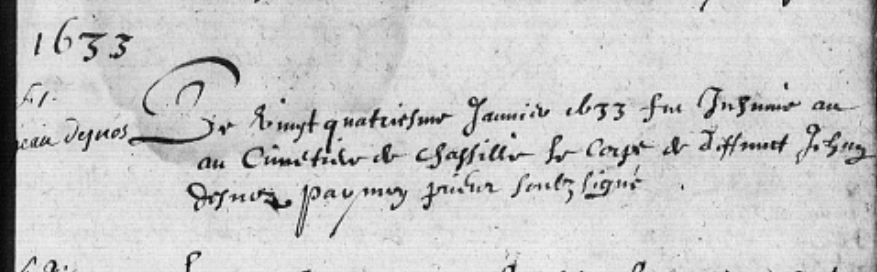 1633
Le vingt quatriesme Janvier 1633 fut Inhumé au
au Cimetiere de chassillé le corps de deffunct Jehan
par moy prieur soubz signé